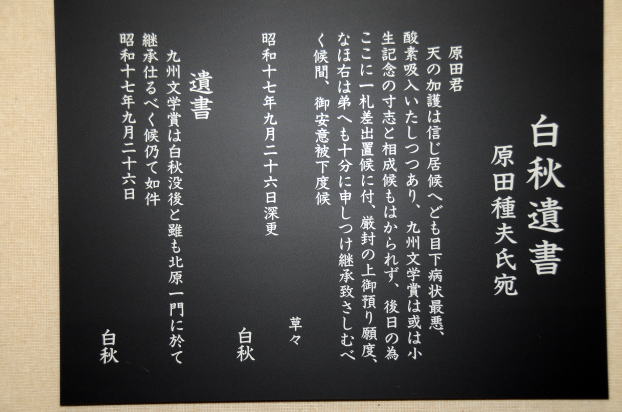 白秋遺書
原田種夫氏宛
原田君
天の加護は信じ居候へども目下病状最悪、
酸素吸入いたしつつあり、九州文学賞は或は小
生記念の寸志と相成候もはかられず、後日の為
ここに一札差出置候に付、厳封の上御預り願度、
なほ右は弟へも十分に申しつけ継承致さしむべ
く候間、御安意被下度候
草々
昭和十七年九月二十六日深更
白秋
遺書
九州文学賞は白秋没後と雖も北原一門に於て
継承仕るべく候仍て如件
昭和十七年九月二十六日
白秋